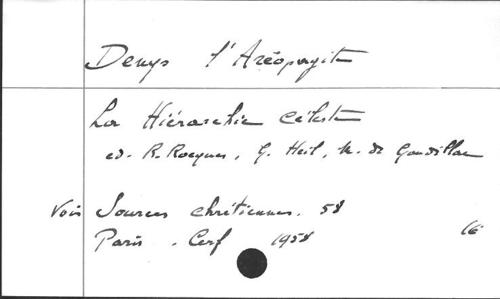 Denys l'Aréopagite
La Hiérarchie Céleste
ed. R. Roques, G. Heil, M. de Gandillac
Voir Sources chrétiennes. 58
Paris. Cerf 1958 16